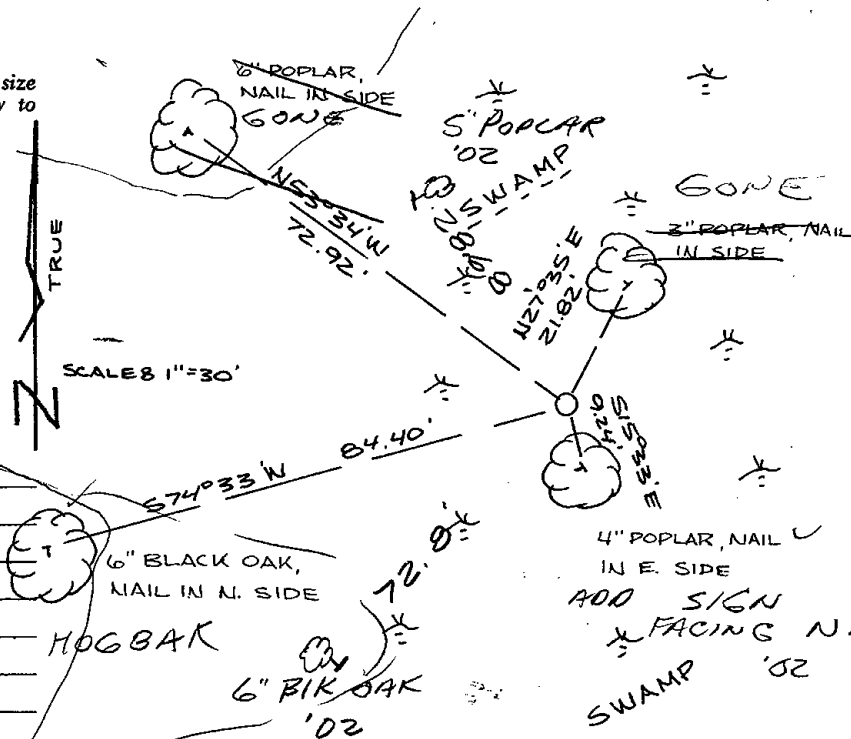 size
to
6" POPLAR,
NAIL IN SIDE
GONE
5" POPLAR
'02
SWAMP
GONE
3" POPLAR, NAIL
IN SIDE
N53°34'W
72.92'
N27°35'E
21.82'
TRUE
N
SCALE: 1"=30'
S74°33'W 84.40'
S15°33'E
9.24'
6" BLACK OAK,
NAIL IN N. SIDE
HOGBAK
72.8'
6" BlK OAK
'02
4" POPLAR, NAIL
IN E. SIDE
ADD SIGN
FACING N.
'02
SWAMP